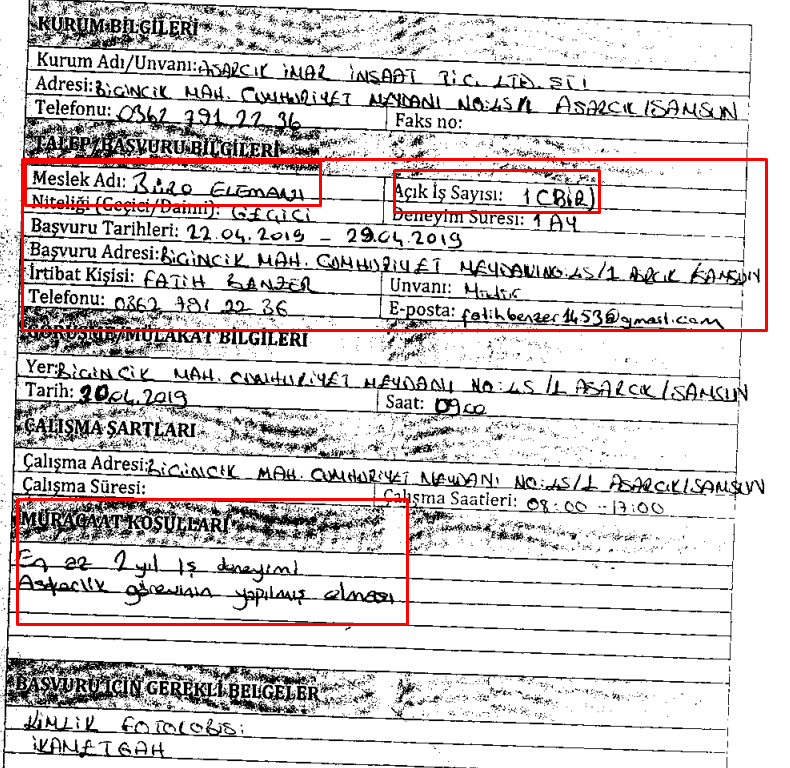 KURUM BİLGİLERİ
Kurum Adı/Unvanı: ASARCIK İMAR İNSAAT TİC. LTD. STİ
Adresi: BİCİNCİK MAH. CUMHURİYET MEYDANI NO:45/1 ASARCIK/SAMSUN
Telefonu: 0362 791 22 36 Faks no:
TALEP/BAŞVURU BİLGİLERİ
Meslek Adı: BÜRO ELEMANI Açık İş Sayısı: 1 (BİR)
Niteliği (Geçici/Daimi): GEÇİCİ Deneyim Süresi: 1 AY
Başvuru Tarihleri: 22.04.2019 – 29.04.2019
Başvuru Adresi: BİCİNCİK MAH. CUMHURİYET MEYDANI NO:45/1 ASARCIK/SAMSUN
İrtibat Kişisi: FATİH BENZER Unvanı: Müdür
Telefonu: 0362 791 22 36 E-posta: fatihbenzer1453@gmail.com
GÖRÜŞME/MÜLAKAT BİLGİLERİ
Yer: BİCİNCİK MAH. CUMHURİYET MEYDANI NO:45/1 ASARCIK/SAMSUN
Tarih: 30.04.2019 Saat: 09:00
ÇALIŞMA ŞARTLARI
Çalışma Adresi: BİCİNCİK MAH. CUMHURİYET MEYDANI NO:45/1 ASARCIK/SAMSUN
Çalışma Süresi: Çalışma Saatleri: 08:00 -17:00
MÜRACAAT KOŞULLARI
En az 2 yıl iş deneyimi
Askerlik görevinin yapılmış olması
BAŞVURU İÇİN GEREKLİ BELGELER
KİMLİK FOTOKOBİSİ
İKAMETGAH